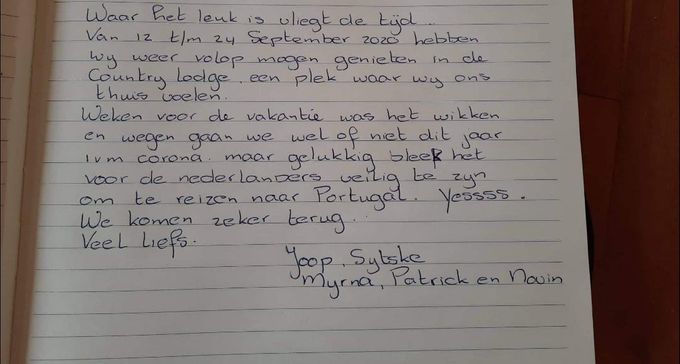 Waar het leuk is vliegt de tijd.
Van 12 t/m 24 September 2020 hebben
wy weer volop mogen genieten in de
Country lodge. een plek waar wy ons
thuis voelen.
Weken voor de vakantie was het wikken
en wegen gaan we wel of niet dit jaar
ivm corona. maar gelukkig bleek het
voor de nederlanders veilig te zyn
om te reizen naar Portugal. Yessss.
We komen zeker terug..
Veel liefs.
Joop, Sytske
Myrna, Patrick en Navin